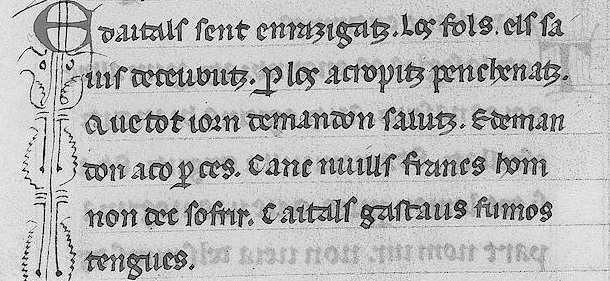 E daitals sent enrazigatz. Los fols. els sa
uis deceubutz. ꝑ los acropitz penchenatz.
Que tot iorn demandon salutz. E deman
don aco ꝑ ces. Canc nuills francs hom
non dec sofrir. Caitals gastaus fumos
tengues.